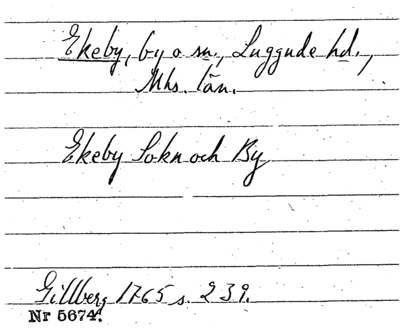 Ekeby, by o sn., Luggude hd.,
Mhs. län.
Ekeby Sokn och By
Gillberg 1765 s. 239.
Nr 5674.